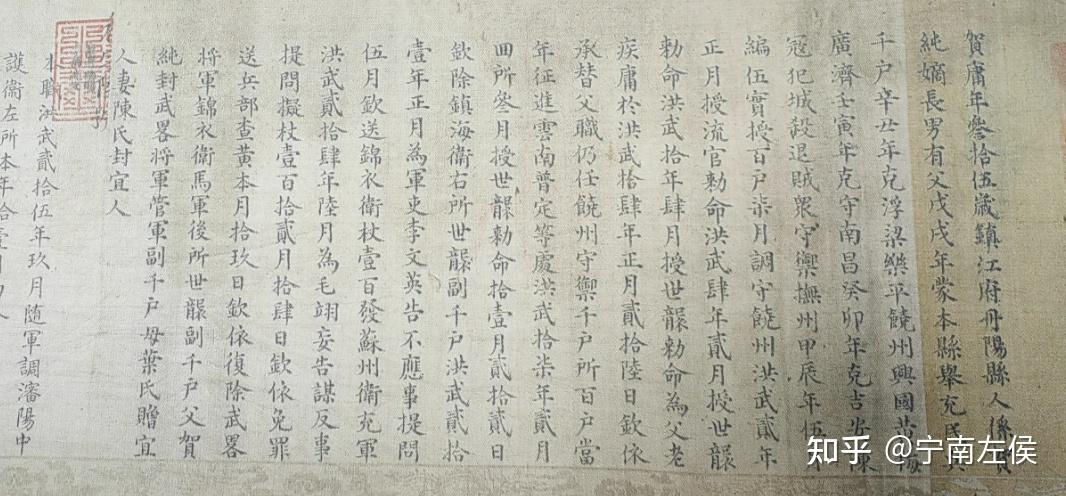 賀庸年叁拾伍歲鎮江府丹陽縣人係賀
純嫡長男有父戊戌年蒙本縣舉充民兵
千户辛丑年克浮梁樂平饒州興國黃梅
廣濟壬寅年克守南昌癸卯年克吉安
寇犯城殺退賊衆守禦撫州甲辰年伍月
編伍實授百户柒月調守饒州洪武貳年
正月授流官勑命洪武肆年貳月授世襲
勑命洪武拾年肆月授世襲勑命為父老
疾庸於洪武拾肆年正月貳拾陸日欽依
承替父職仍任饒州守禦千户所百户當
年征進雲南普定等處洪武拾柒年貳月
欽除鎮海衛右所世襲副千户洪武貳拾
四所叁月授世襲勑命拾壹月貳拾貳日
壹年正月為軍吏李文英告不應事提問
伍月欽送錦衣衛杖壹百發蘇州衛充軍
洪武貳拾肆年陸月為毛翊妄告謀反事
提問擬杖壹百拾貳月拾肆日欽依免罪
送兵部查黃本月拾玖日欽依復除武畧
將軍錦衣衛馬軍後所世襲副千户父賀
純封武畧將軍管軍副千户母葉氏贈宜
人妻陳氏封宜人
本職洪武貳拾伍年玖月随軍調瀋陽中
護衛左所本年拾壹月
知乎 @宁南左侯